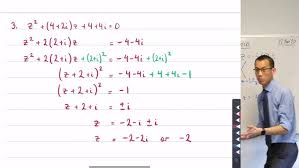 3. z² + (4+2i)z + 4+4i = 0
z² + 2(2+i)z = -4-4i
z² + 2(2+i)z + (2+i)² = -4-4i + (2+i)²
(z+2+i)² = -4-4i + 4+4i-1
(z+2+i)² = -1
z+2+i = ±i
z = -2-i ± i
z = -2-2i or -2